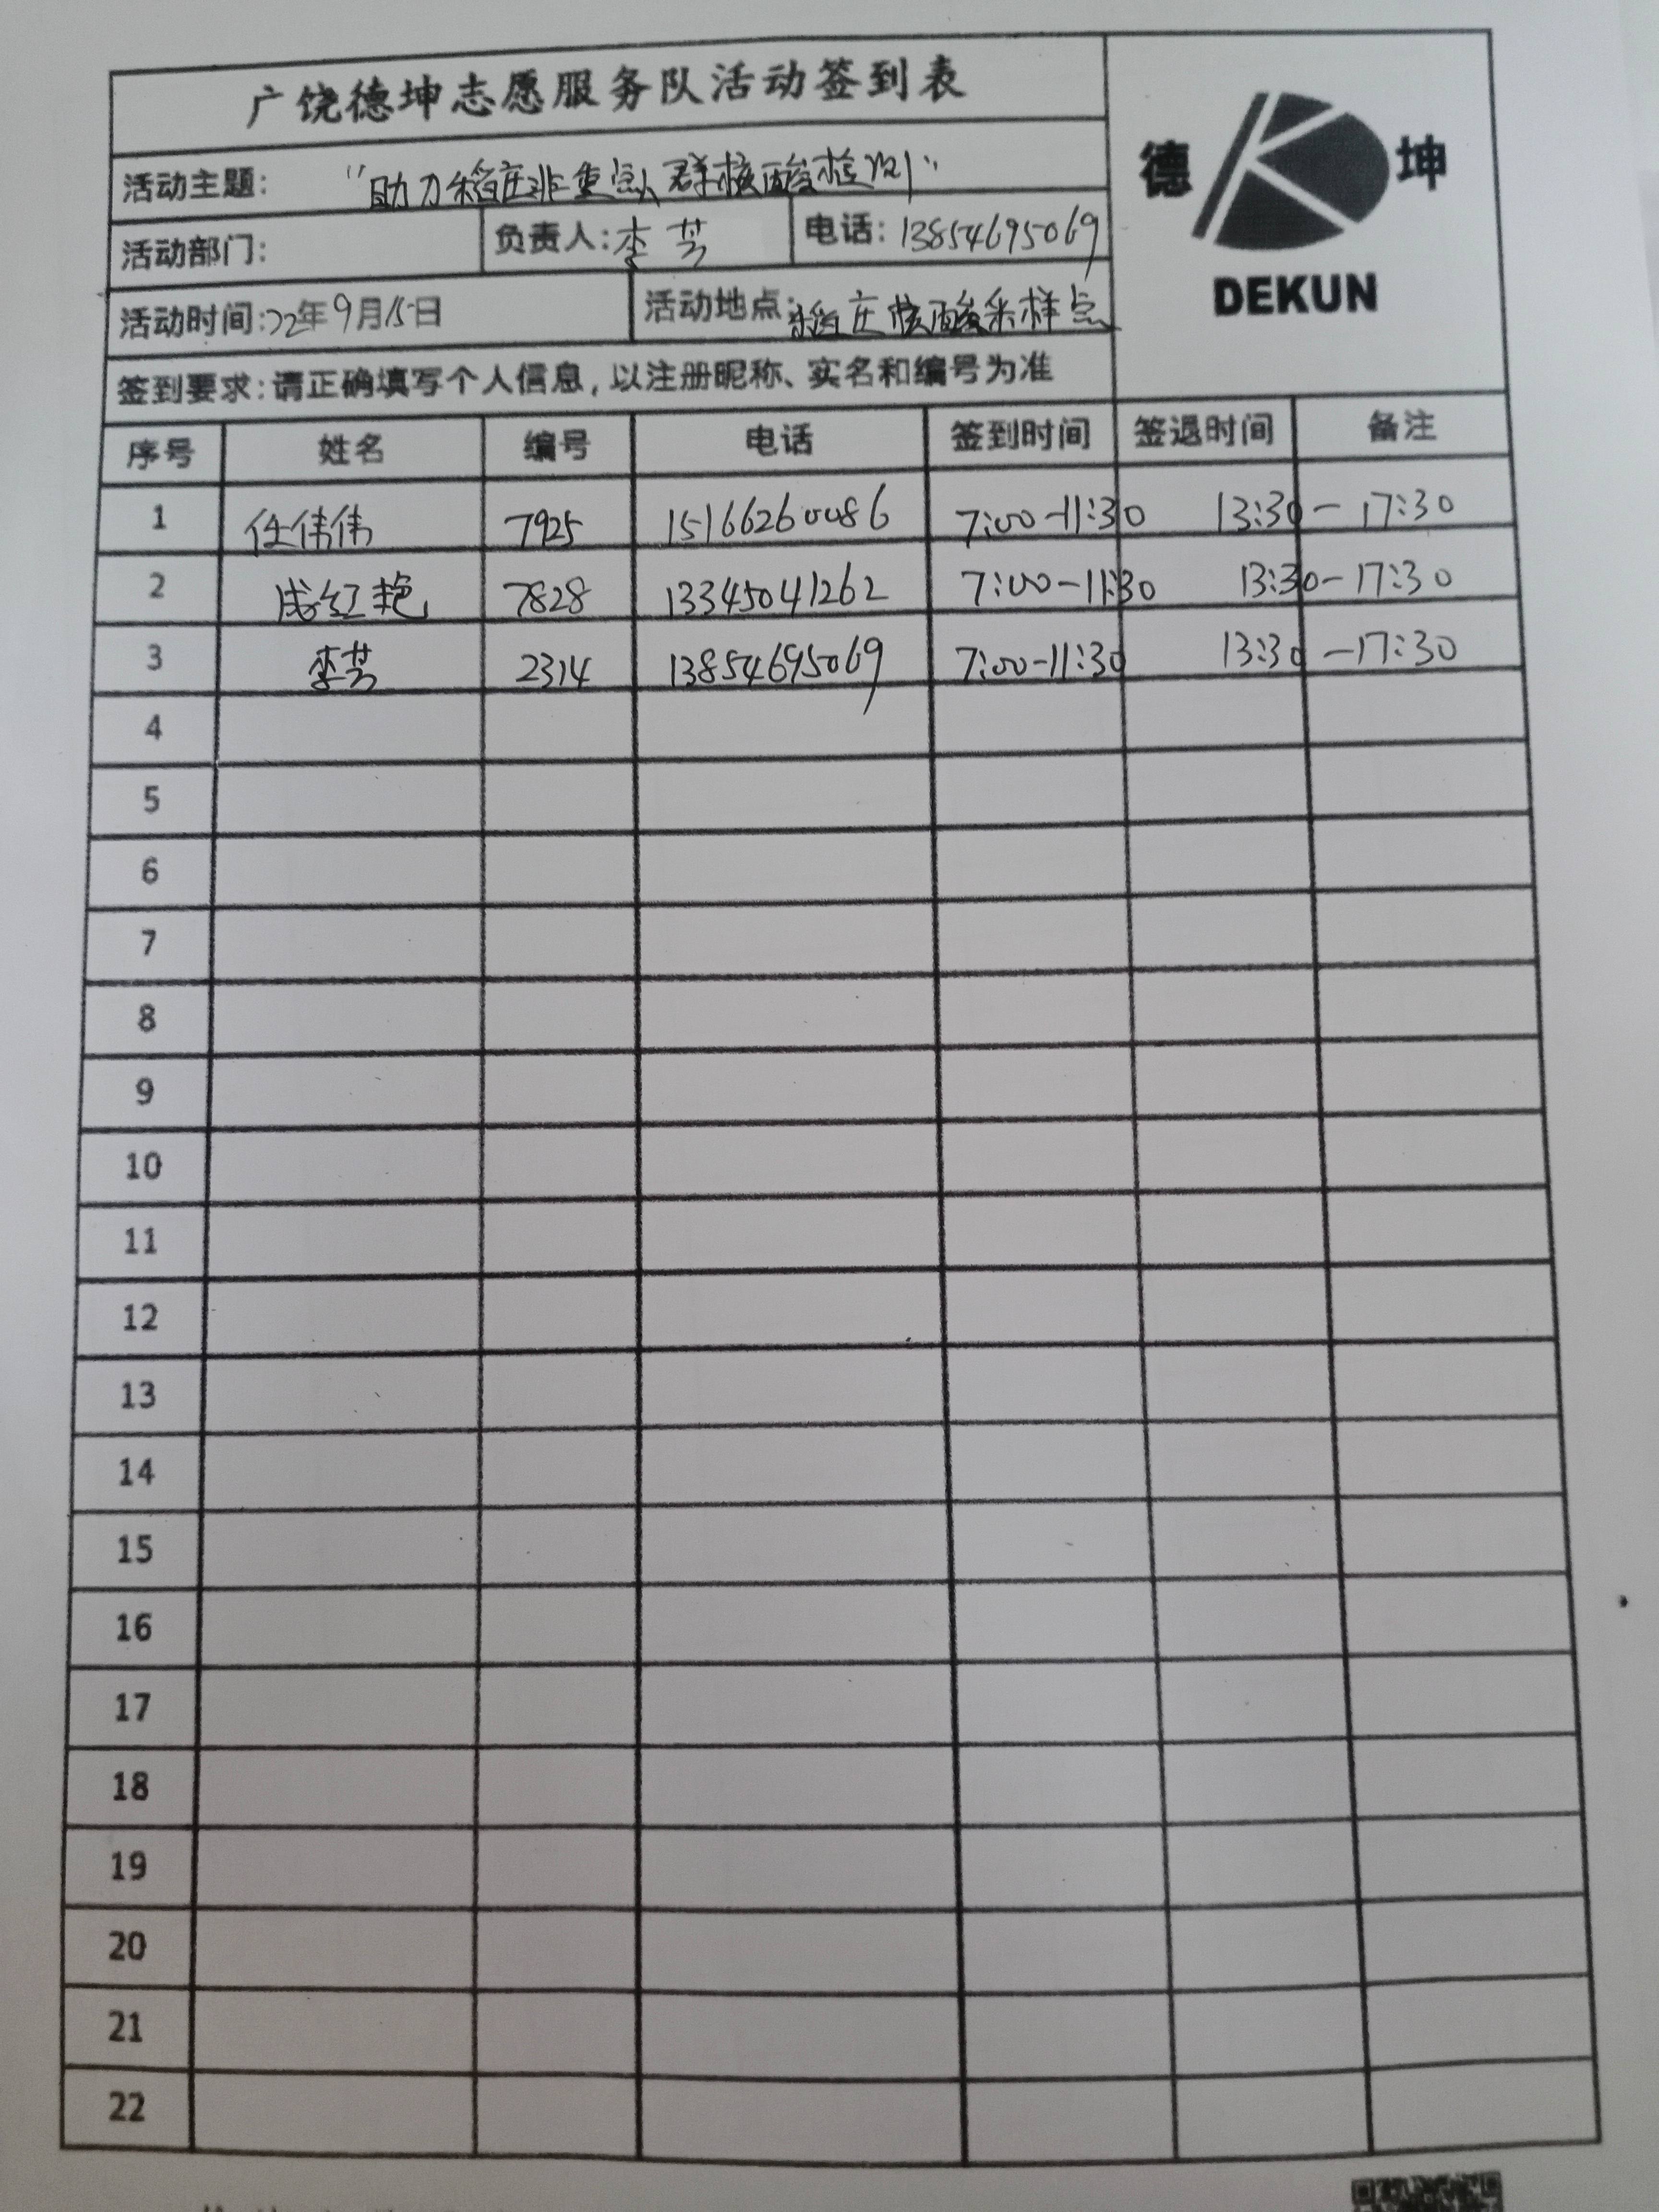 广饶德坤志愿服务队活动签到表
德 坤
DEKUN
活动主题： “助力稻庄非重点人群核酸检测”
活动部门： 负责人：李芳 电话：13854695069
活动时间：22年9月15日 活动地点：稻庄核酸采样点
签到要求：请正确填写个人信息，以注册昵称、实名和编号为准
序号 姓名 编号 电话 签到时间 签退时间 备注
1 任伟伟 7925 15166260086 7:00-11:30 13:30-17:30
2 成红艳 7828 13345041262 7:00-11:30 13:30-17:30
3 李芳 2314 13854695069 7:00-11:30 13:30-17:30
4
5
6
7
8
9
10
11
12
13
14
15
16
17
18
19
20
21
22